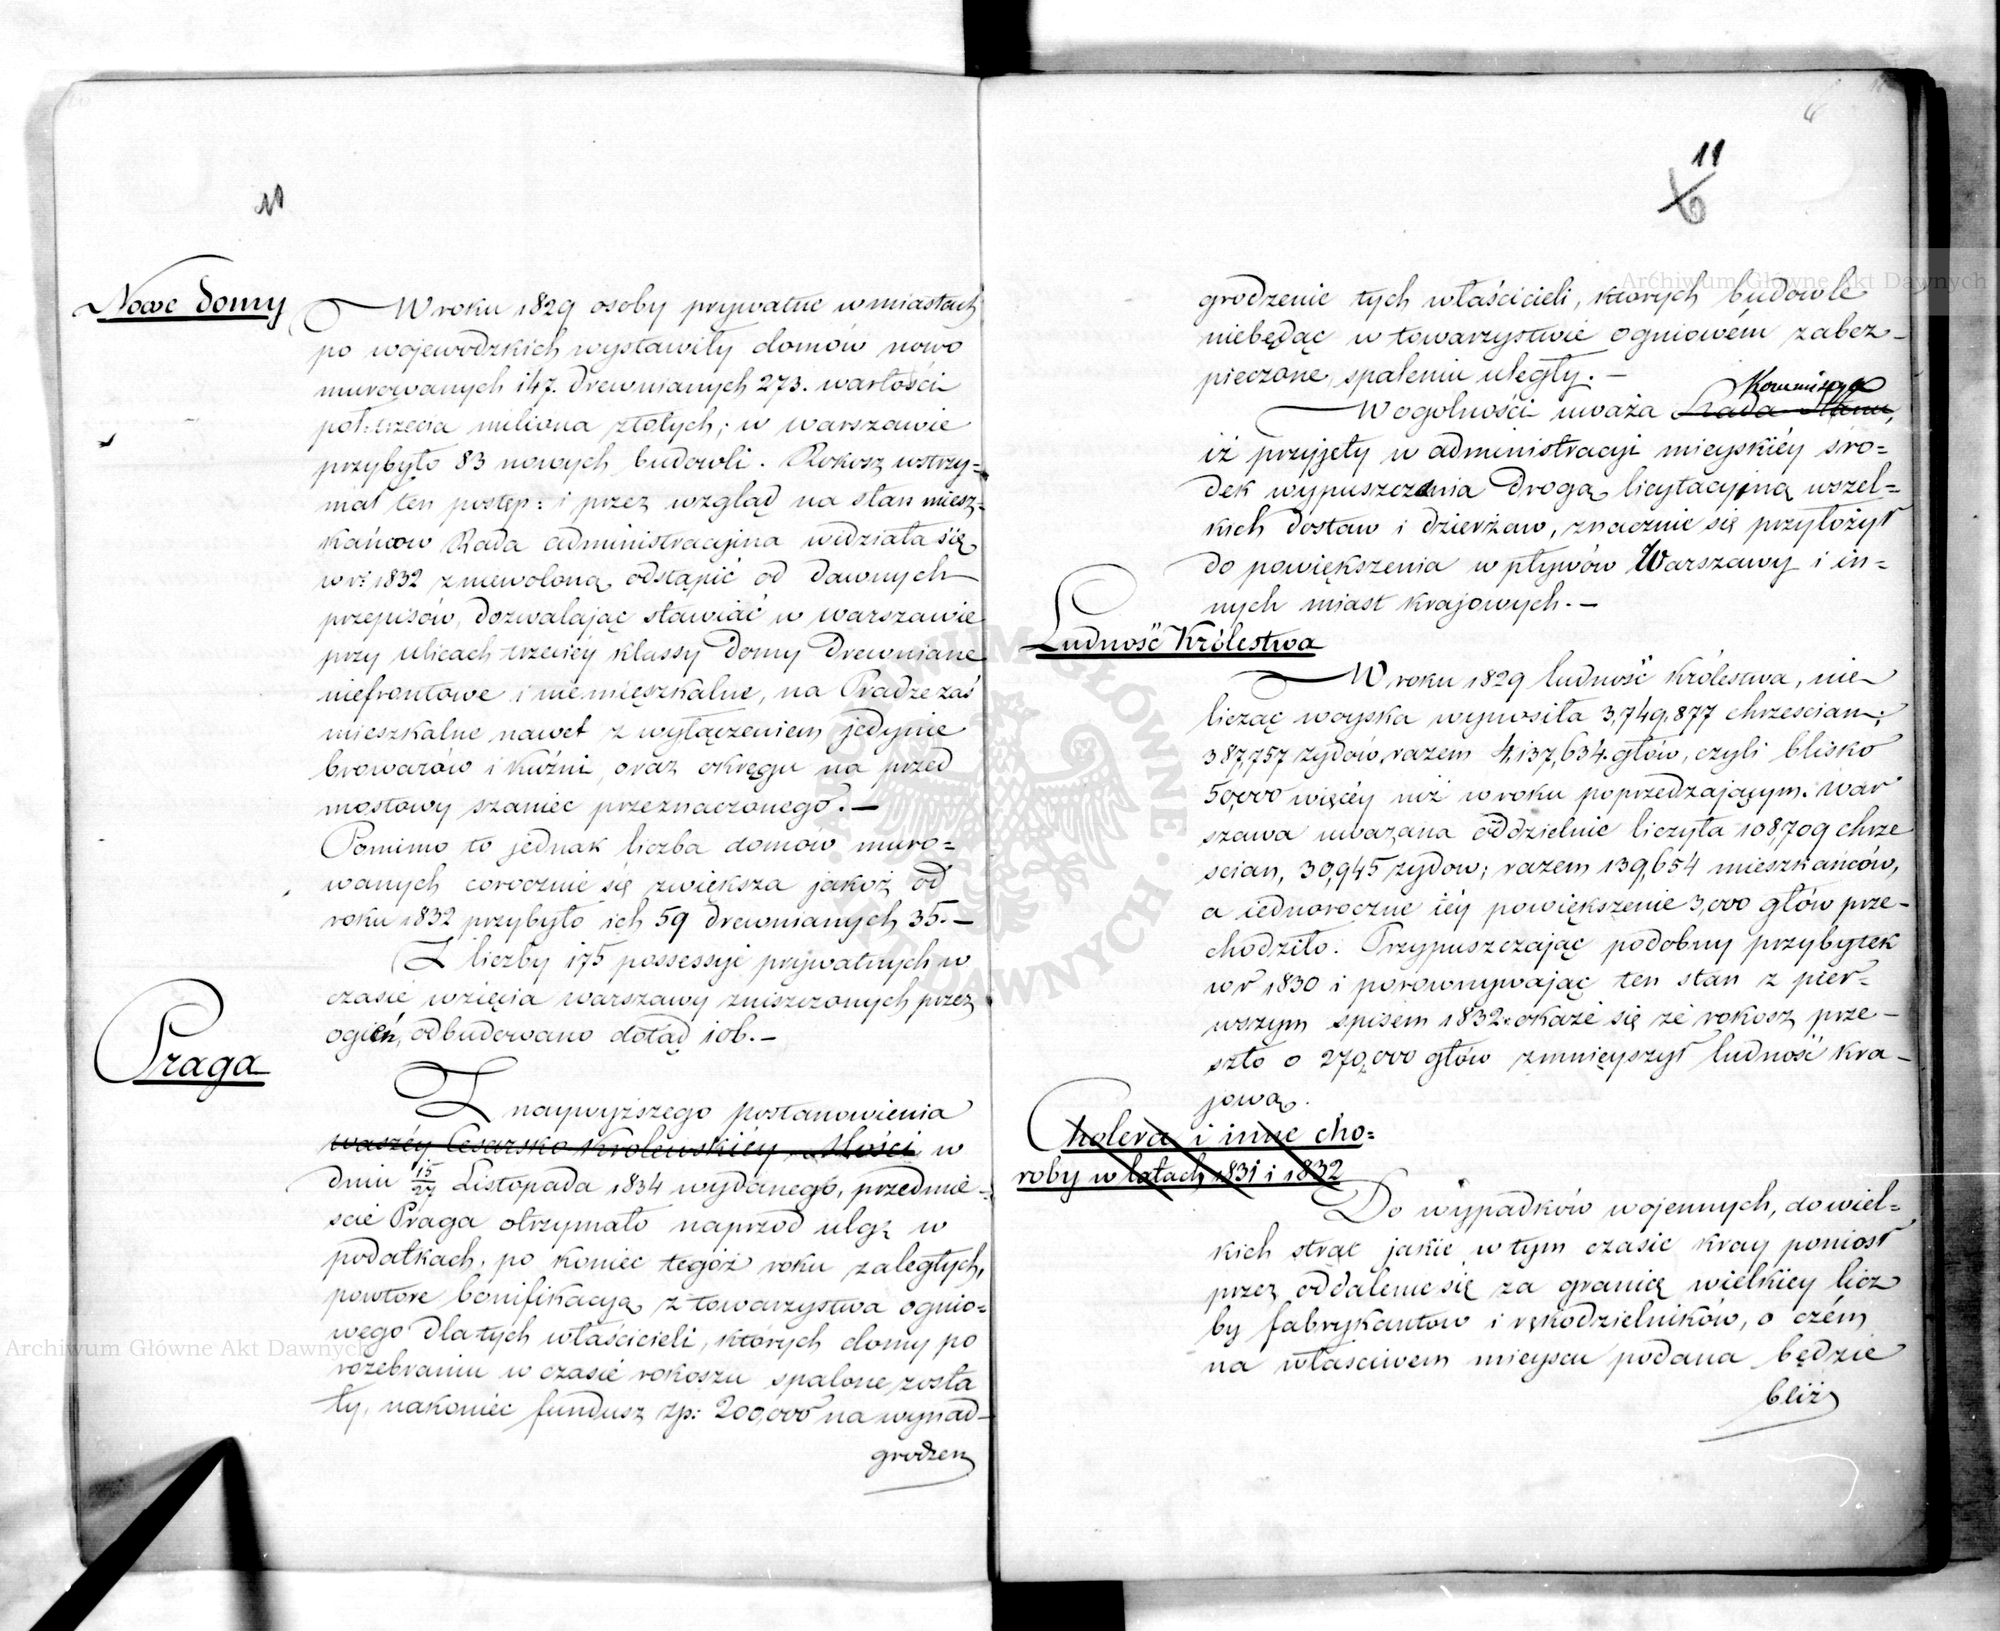 Nowe domy
W roku 1829 osoby prywatne w miastach
po wojewodzkich wystawiły domów nowo
murowanych 147. drewnianych 273. wartości
poł-trzecia miliona złotych; w warszawie
przybyło 83 nowych budowli. Rokosz wstrzy=
mał ten postęp: i przez wzgląd na stan miesz=
kańcow Rada administracyina widziała się
w r: 1832 zniewoloną odstąpić od dawnych
przepisów, dozwalając stawiać w warszawie
przy ulicach trzeciéy klassy domy drewniane
niefrontowe i niemięszkalne, na Pradze zaś
mieszkalne nawet z wyłączeniem jedynie
browarów i kuźni, oraz okręgu na przed
mostowy szaniec przeznaczonego. —
Pomimo to jednak liczba domów muro=
wanych corocznie się zwiększa jakoż od
roku 1832 przybyło ich 59 drewnianych 35. —
Z liczby 175 possessyi prywatnych w
czasie wzięcia warszawy zniszczonych przez
ogień, odbudowano dotąd 106. —
Praga
Z naywyższego postanowienia
waszéy Cesarsko Królewskiéy Mości w
dniu 15/27 Listopada 1834 wydanego, przedmie=
ście Praga otrzymało naprzód ulgę w
podatkach, po koniec tegóż roku zaległych,
powtóre bonifikacyą z towarzystwa ognio=
wego dla tych właścicieli, których domy po
rozebraniu w czasie rokoszu spalone zosta
ły, nakoniec fundusz zp: 200,000 na wynad=
grodzen
11
6
grodzenie tych właścicieli, ktorych budowle
niebędąc w towarzystwie ogniowém zabez=
pieczone, spaleniu uległy. —
Kommissya
W ogolności uważa Rada Stanu,
iż przyjęty w administracyi mieyskiéy śro=
dek wypuszczania drogą licytacyjną wszel=
kich dostaw i dzierżaw, znacznie się przyłożył
do powiększenia wpływów Warszawy i in=
nych miast krajowych. —
Ludność Królestwa
W roku 1829 ludność Królestwa, nie
licząc woyska wynosiła 3,749,877 chrzescian;
387,757 zydów, razem 4,137,634. głów, czyli blisko
50,000 więcéy niż w roku poprzedzającym. War
szawa uważana oddzielnie liczyła 108,709 chrze
scian, 30,945 zydow; razem 139,654 mieszkańców,
a iednoroczne iéy powiększenie 3,000 głów prze=
chodziło. Przypuszczając podobny przybytek
w r 1830 i porownywając ten stan z pier=
wszym spisem 1832. okaże się że rokosz prze=
szło o 270,000 głów zmnieyszył ludność kra=
jową.
Cholera i inne cho=
roby w latach 1831 i 1832
Do wypadków wojennych, do wiel=
kich strat jakie w tym czasie kray poniosł
przez oddalenie się za granicę wielkiey licz
by fabrykantow i rękodzielników, o czém
na właściwem mieyscu podana będzie
bliż
Archiwum Główne Akt Dawnych
Archiwum Główne Akt Dawnych
ARCHIWUM GŁÓWNE AKT DAWNYCH